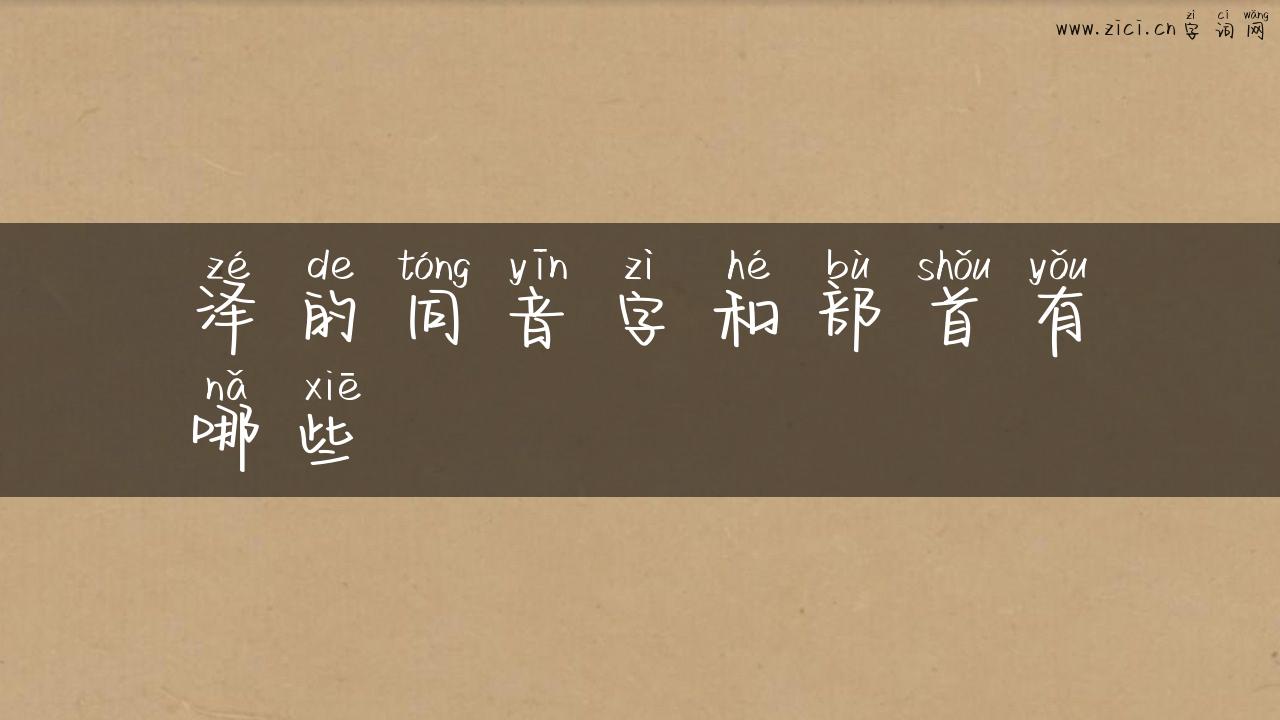 zì cí wǎng
www.zici.cn 字 词 网
zé de tóng yīn zì hé bù shǒu yǒu
泽 的 同 音 字 和 部 首 有
nǎ xiē
哪 些